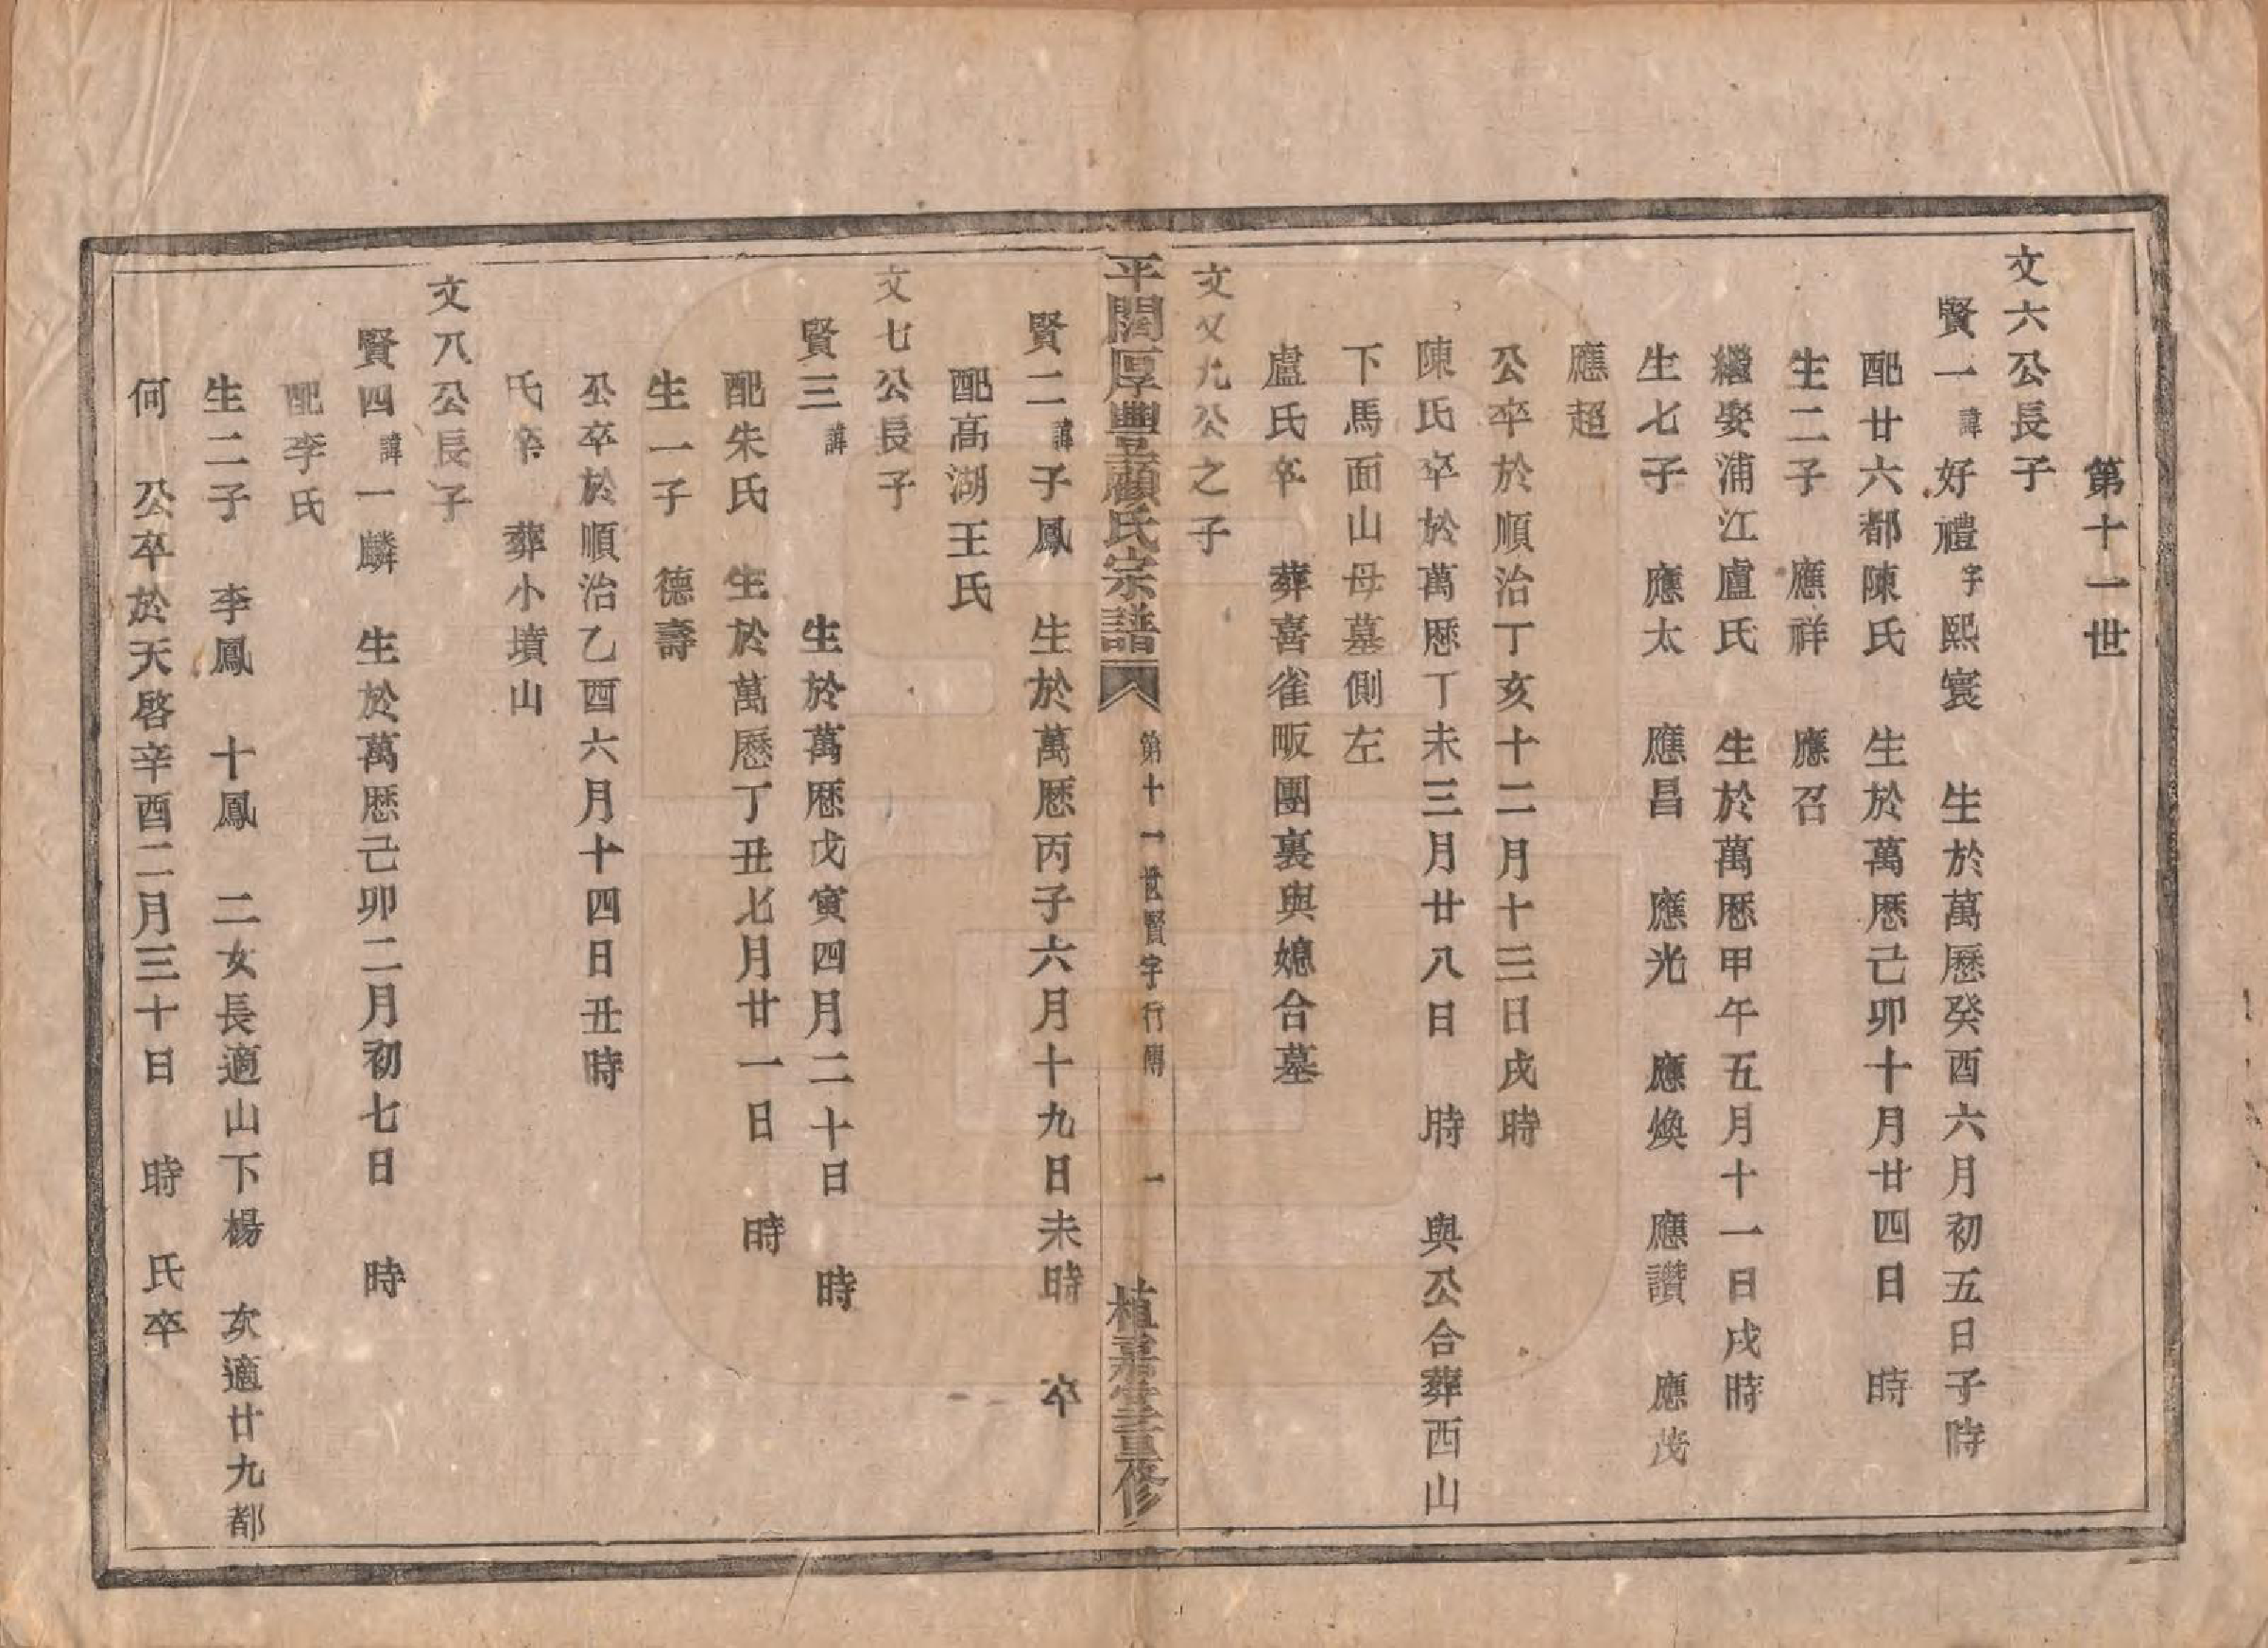 第十一世
文六公長子
賢一諱好禮字熙寰　生於萬歷癸酉六月初五日子時
配廿六都陳氏　生於萬歷己卯十月廿四日　時
生二子　應祥　應召
繼娶浦江盧氏　生於萬歷甲午五月十一日戌時
生七子　應太　應昌　應光　應煥　應讚　應茂
應超
公卒於順治丁亥十二月十三日戌時
陳氏卒於萬歷丁未三月廿八日　時　與公合葬西山
下馬面山母墓側左
盧氏卒　葬喜雀畈團裏與媳合墓
文又九公之子
平闊厚豊顧氏宗譜　第十一世賢字行傳　一　植嘉堂重修
賢二諱子鳳　生於萬歷丙子六月十九日未時　卒
配高湖王氏
文七公長子
賢三諱　生於萬歷戊寅四月二十日　時
配朱氏　生於萬歷丁丑七月廿一日　時
生一子　德壽
公卒於順治乙酉六月十四日丑時
氏卒　葬小墳山
文八公長子
賢四諱一麟　生於萬歷己卯二月初七日　時
配李氏
生二子　李鳳　十鳳　二女長適山下楊　次適廿九都
何　公卒於天啓辛酉二月三十日　時　氏卒